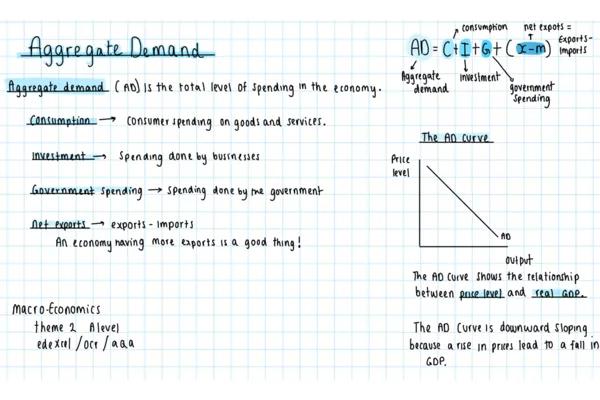 Aggregate Demand
Aggregate demand (AD) is the total level of spending in the economy.
Consumption → consumer spending on goods and services.
Investment → spending done by businesses
Government spending → spending done by the government
Net exports → exports - imports
An economy having more exports is a good thing!
Macro-Economics
theme 2 A level
edexcel / ocr / aqa
consumption
net expots =
AD = C + I + G + (x-m)
Exports-
imports
Aggregate
demand
investment
government
spending
The AD curve
Price
level
AD
output
The AD curve shows the relationship
between price level and real GDP.
The AD curve is downward sloping
because a rise in prices lead to a fall in
GDP.